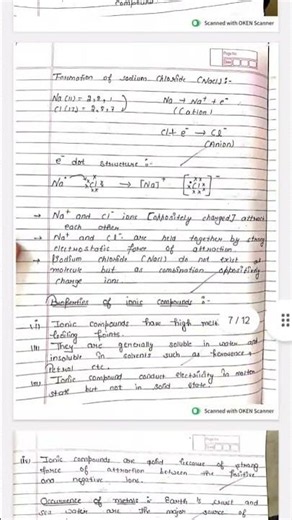 Compound.
Scanned with OKEN Scanner
Page No.
Date
Formation of sodium chloride (NaCl) :-
Na (11) = 2,8,1
Na → Na⁺ + e⁻
Cl (17) = 2,8,7
(Cation)
Cl + e⁻ → Cl⁻
(Anion)
e⁻ dot structure :-
Na Cl → [Na]⁺ [Cl]⁻
→ Na⁺ and Cl⁻ ions [oppositely charged] attract
each other
→ Na⁺ and Cl⁻ are held together by strong
electrostatic force of attraction
→ Sodium chloride (NaCl) do not exist as
molecule but as combination oppositively
charge ions.
Properties of ionic compounds :-
i) Ionic compounds have high
boiling points.
7 / 12
ii) They are generally soluble in water and
insoluble in solvents such as kerosene,
Petrol etc.
iii) Ionic compound conduct electricity in molten
state but not in solid state.
Scanned with OKEN Scanner
Page No.
Date
iv) Ionic compounds are solid because of strong
force of attraction between the positive
and negative ions.
Occurrence of metals :- Earth's crust and
sea water are the major source of